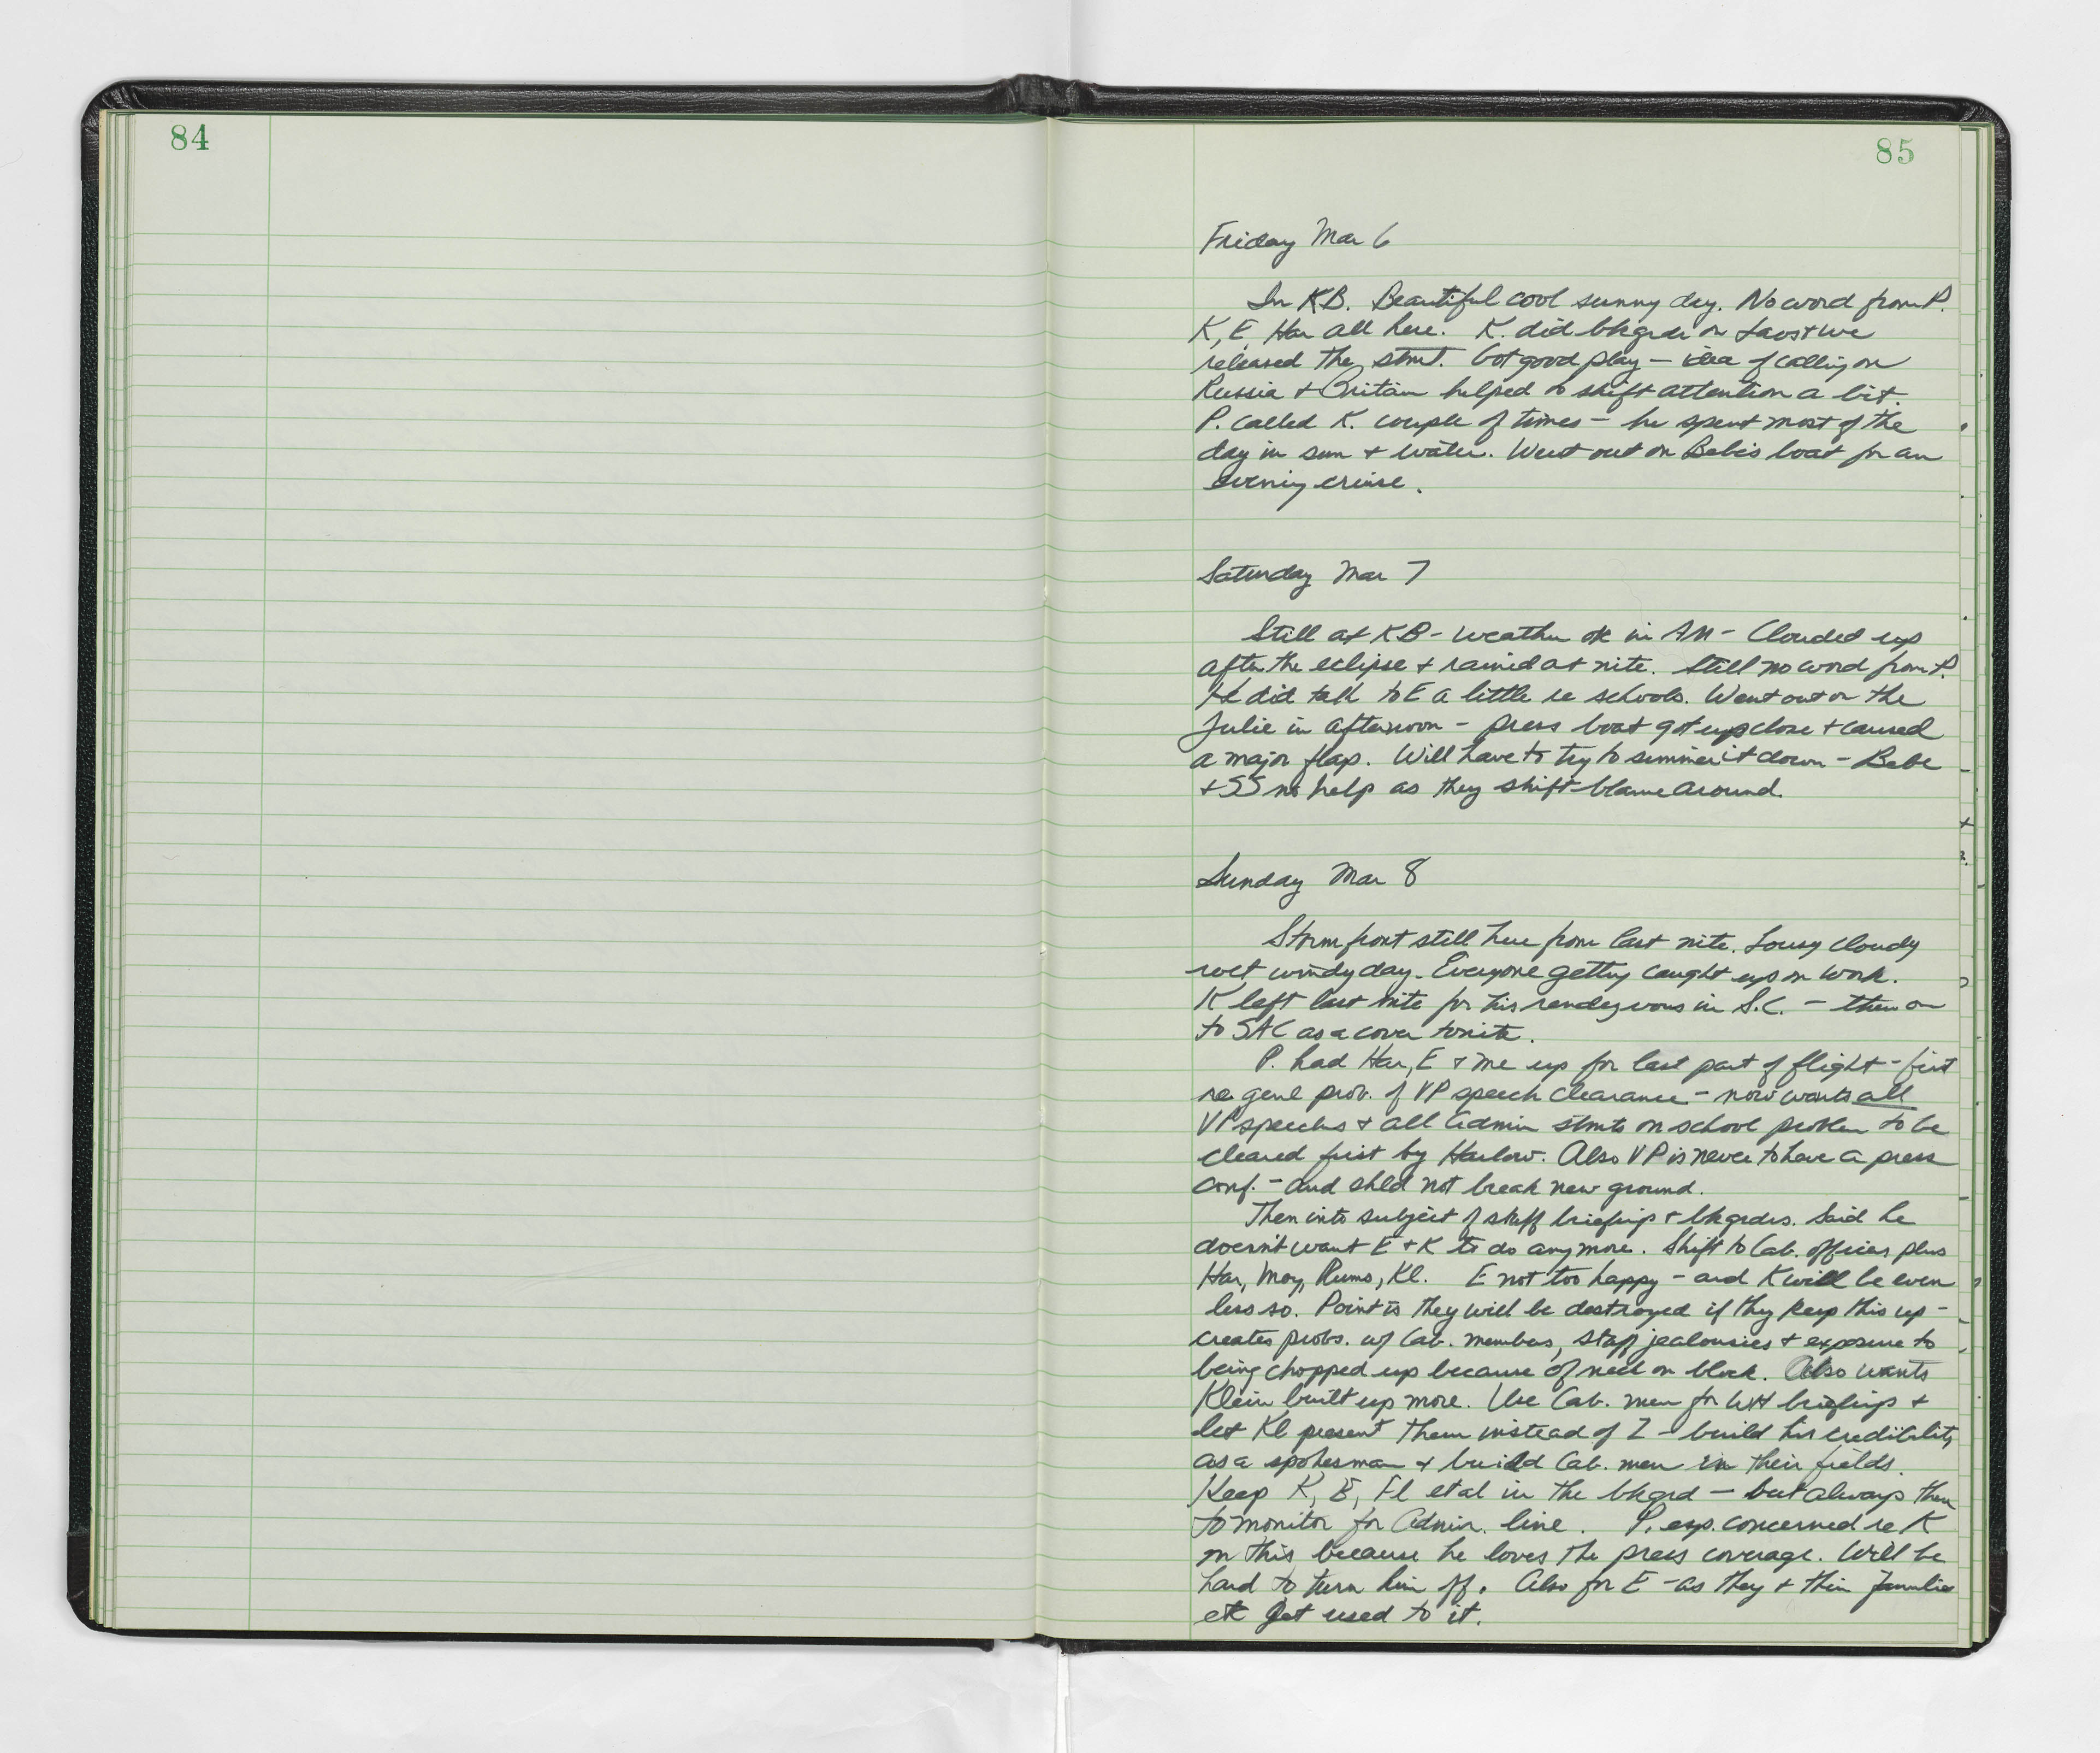 84
85
Friday Mar 6
In KB. Beautiful cool sunny day. No word from P.
K, E, Har all here. K. did bkgrdr on Laos + we
released the stmt. Got good play – idea of calling on
Russia + Britain helped to shift attention a bit.
P. called K. couple of times – he spent most of the
day in sun + water. Went out on Bebe's boat for an
evening cruise.
Saturday Mar 7
Still at KB – weather ok in AM – Clouded up
after the eclipse + rained at nite. Still no word from P.
He did talk to E a little re schools. Went out on the
Julie in afternoon – press boat got up close + caused
a major flap. Will have to try to simmer it down – Bebe
+ SS no help as they shift blame around.
Sunday Mar 8
Storm front still here from last nite. Lousy cloudy
wet windy day. Everyone getting caught up on work.
K left last nite for his rendezvous in S.C. – then on
to SAC as a cover tonite.
P. had Har, E + me up for last part of flight – first
re genl prob. of VP speech clearance – now wants all
VP speeches + all Admin stmts on school problem to be
cleared first by Harlow. Also VP is never to have a press
conf. – and shld not break new ground.
Then into subject of staff briefings + bkgrdrs. Said he
doesn't want E + K to do any more. Shift to Cab. officers plus
Har, Moy, Rums, Kl. E not too happy – and K will be even
less so. Point is they will be destroyed if they keep this up –
creates probs. w/ Cab. members, staff jealousies + exposure to
being chopped up because of neck on block. Also wants
Klein built up more. Use Cab. men for WH briefings +
let Kl present them instead of Z – build his credibility
as a spokesman + build Cab. men in their fields.
Keep K, E, Fl et al in the bkgrd – but always there
to monitor for Admin. line. P. esp. concerned re K
on this because he loves the press coverage. Will be
hard to turn him off. Also for E – as they + their families
etc get used to it.